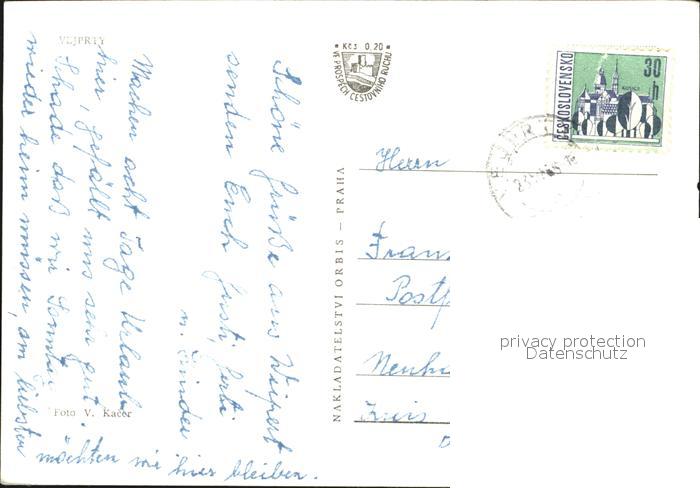 VEJPRTY
Schöne Grüße aus Weipert
senden Euch Gusti, Berti
u. Kinder
Machen acht Tage Urlaub
hier, gefällt uns sehr gut.
Schade daß wir Sonntag
wieder heim müssen, am liebsten
möchten wir hier bleiben.
Foto V. Kačer
Kčs 0,20
VE PROSPĚCH CESTOVNÍHO RUCHU
NAKLADATELSTVÍ ORBIS — PRAHA
ČESKOSLOVENSKO
30
h
Herrn
Fran
Postf
Neuh
Kreis
privacy protection
Datenschutz